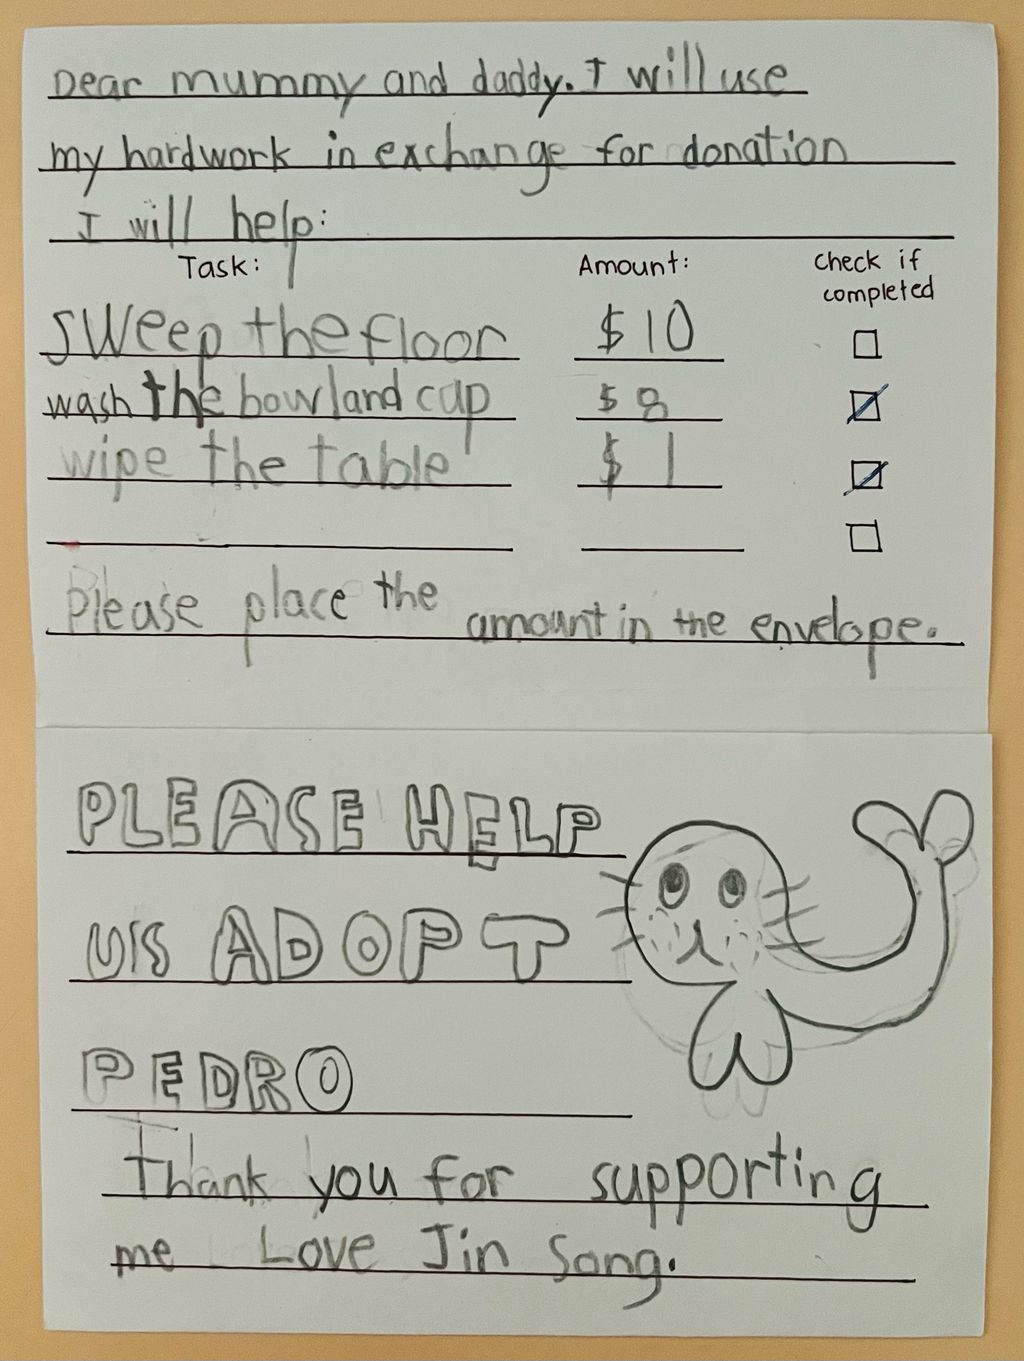 Dear mummy and daddy. I will use
my hardwork in exchange for donation
I will help:
Task: Amount: check if completed
sweep the floor $10
wash the bowl and cup $8
wipe the table $1
Please place the amount in the envelope.
PLEASE HELP
US ADOPT
PEDRO
Thank you for supporting
me Love Jin Song.